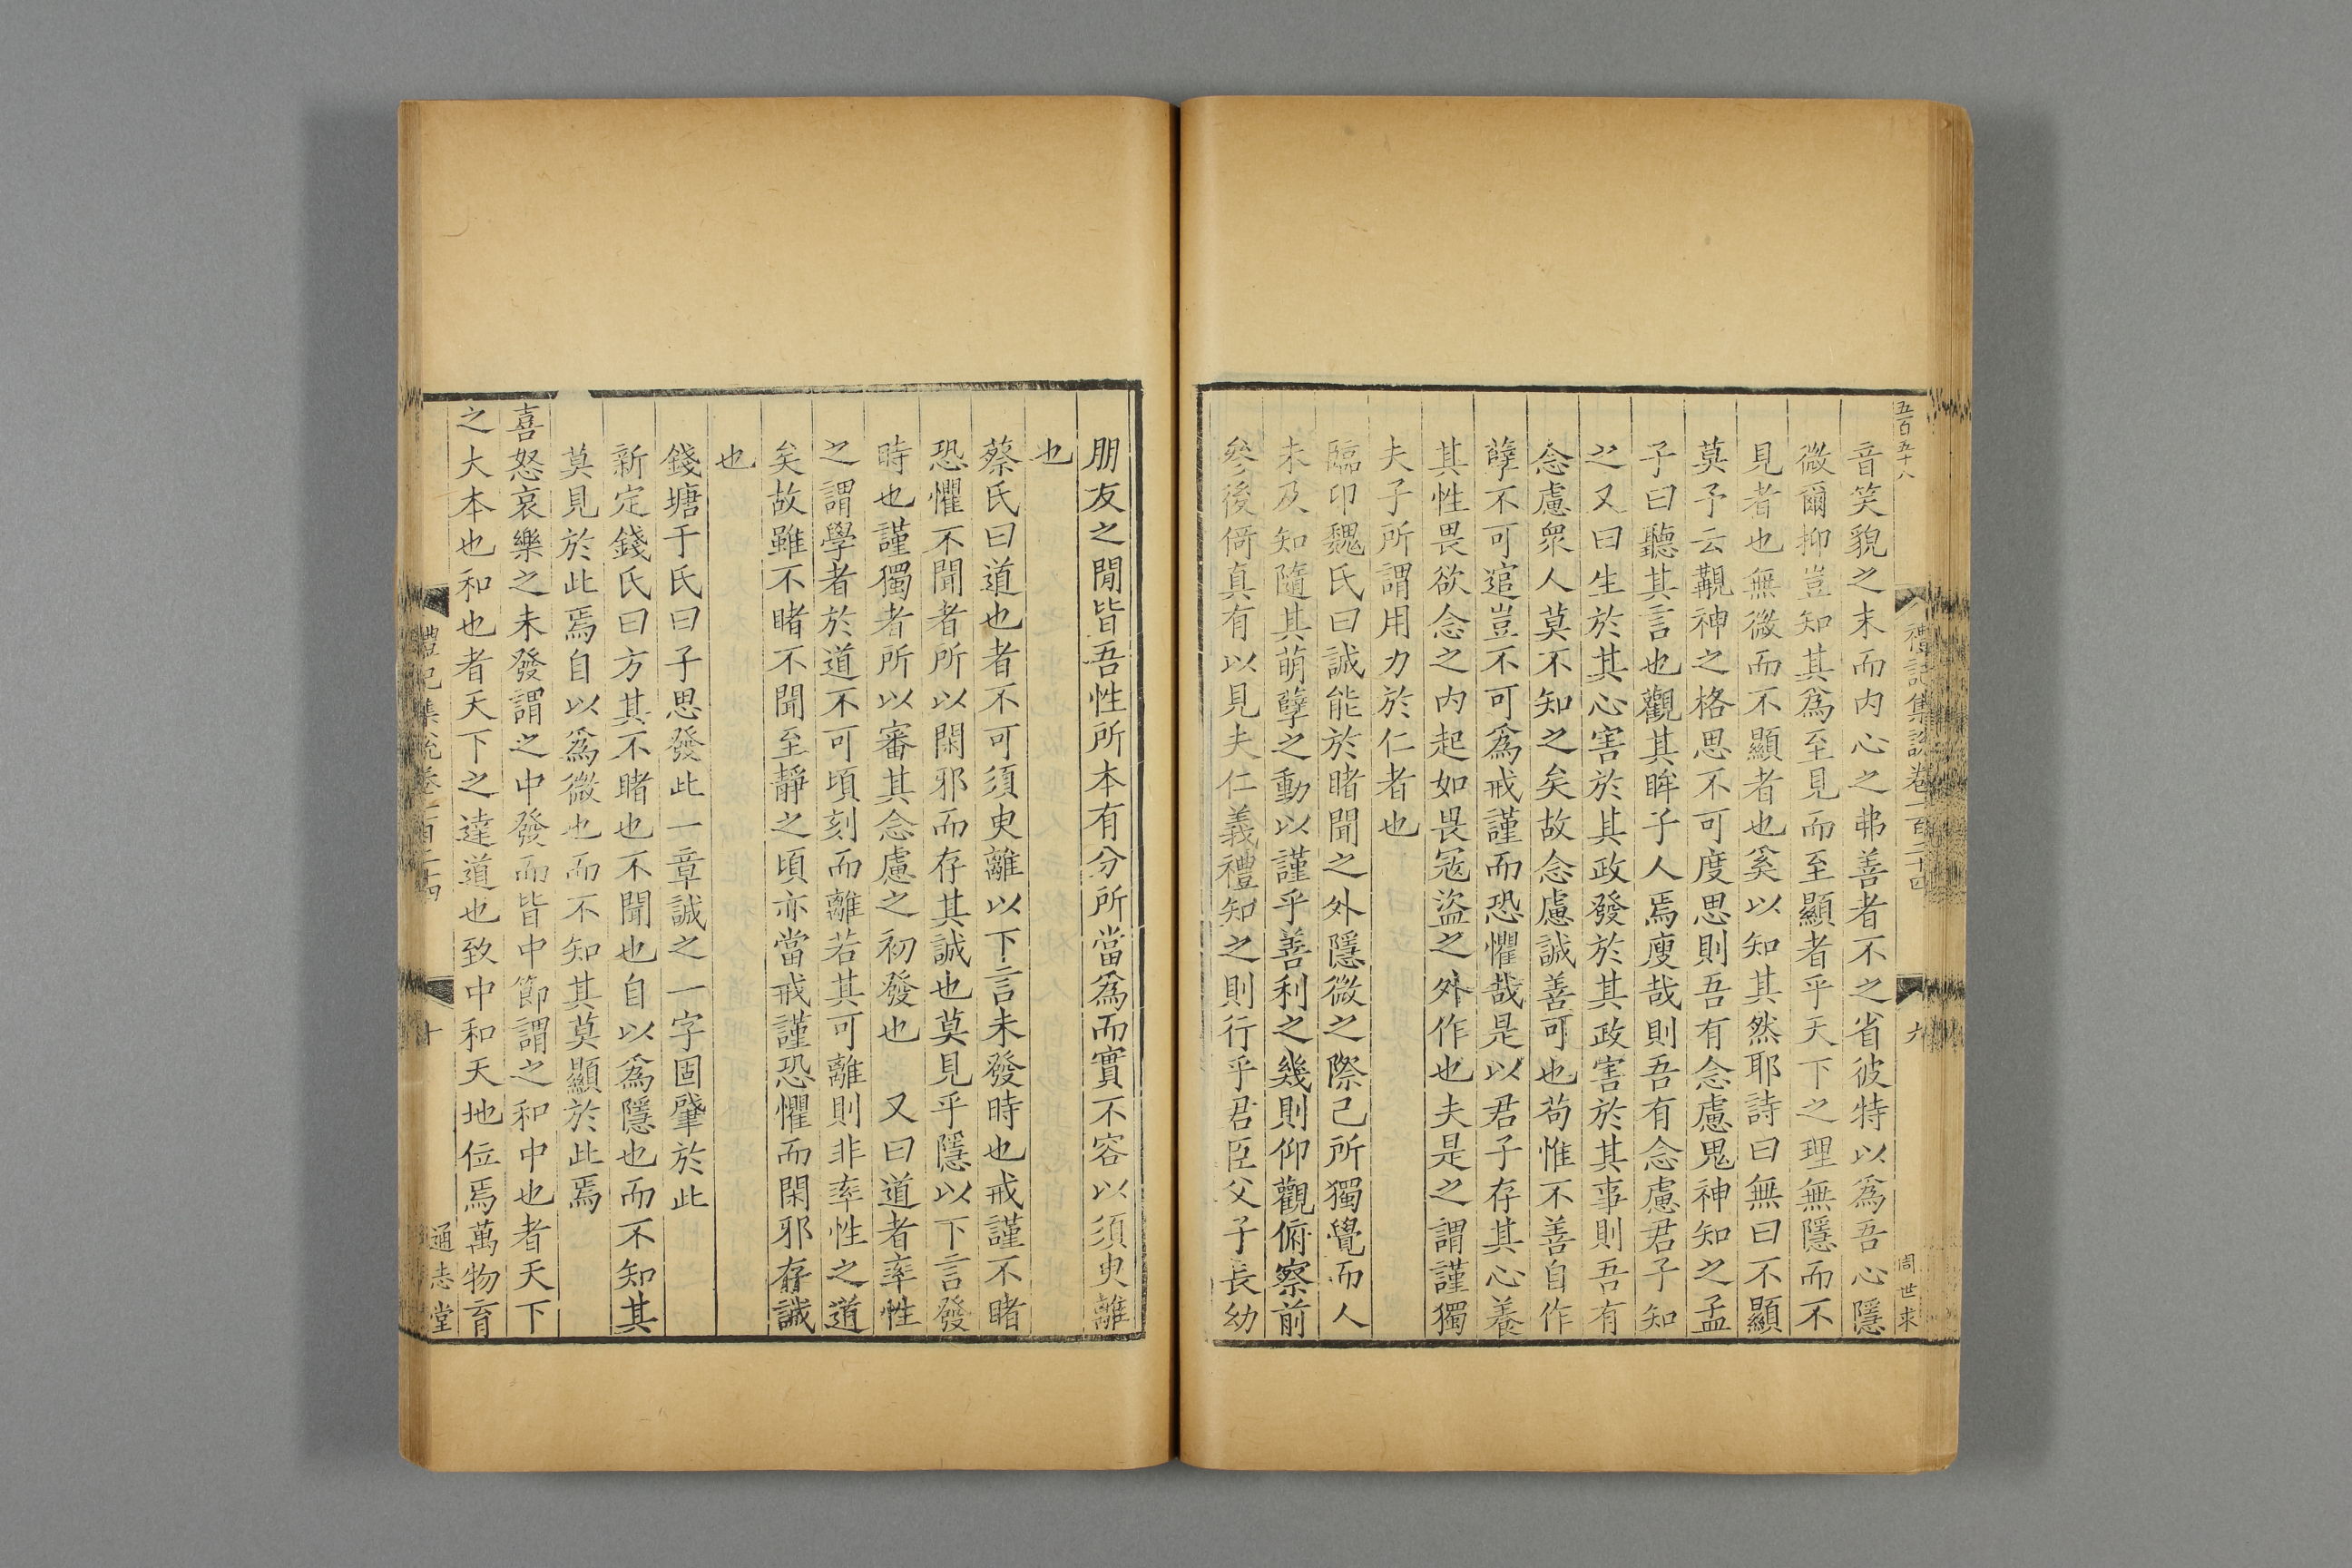 五百五十八
禮記集説卷一百二十四
九
周世求
音笑貌之末而内心之弗善者不之省彼特以爲吾心隱
微爾抑豈知其爲至見而至顯者乎天下之理無隱而不
見者也無微而不顯者也奚以知其然耶詩曰無曰不顯
莫予云覯神之格思不可度思則吾有念慮鬼神知之孟
子曰聽其言也觀其眸子人焉廋哉則吾有念慮君子知
之又曰生於其心害於其政發於其政害於其事則吾有
念慮衆人莫不知之矣故念慮誠善可也苟惟不善自作
孽不可逭豈不可爲戒謹而恐懼哉是以君子存其心養
其性畏欲念之内起如畏冦盜之外作也夫是之謂謹獨
夫子所謂用力於仁者也
臨卭魏氏曰誠能於睹聞之外隱微之際己所獨覺而人
未及知隨其萌孽之動以謹乎善利之幾則仰觀俯察前
參後倚真有以見夫仁義禮知之則行乎君臣父子長幼
朋友之閒皆吾性所本有分所當爲而實不容以須臾離
也
蔡氏曰道也者不可須臾離以下言未發時也戒謹不睹
恐懼不聞者所以閑邪而存其誠也莫見乎隱以下言發
時也謹獨者所以審其念慮之初發也　又曰道者率性
之謂學者於道不可頃刻而離若其可離則非率性之道
矣故雖不睹不聞至靜之頃亦當戒謹恐懼而閑邪存誠
也
錢塘于氏曰子思發此一章誠之一字固肇於此
新定錢氏曰方其不睹也不聞也自以爲隱也而不知其
莫見於此焉自以爲微也而不知其莫顯於此焉
喜怒哀樂之未發謂之中發而皆中節謂之和中也者天下
之大本也和也者天下之達道也致中和天地位焉萬物育
禮記集説卷一百二十四
十
通志堂